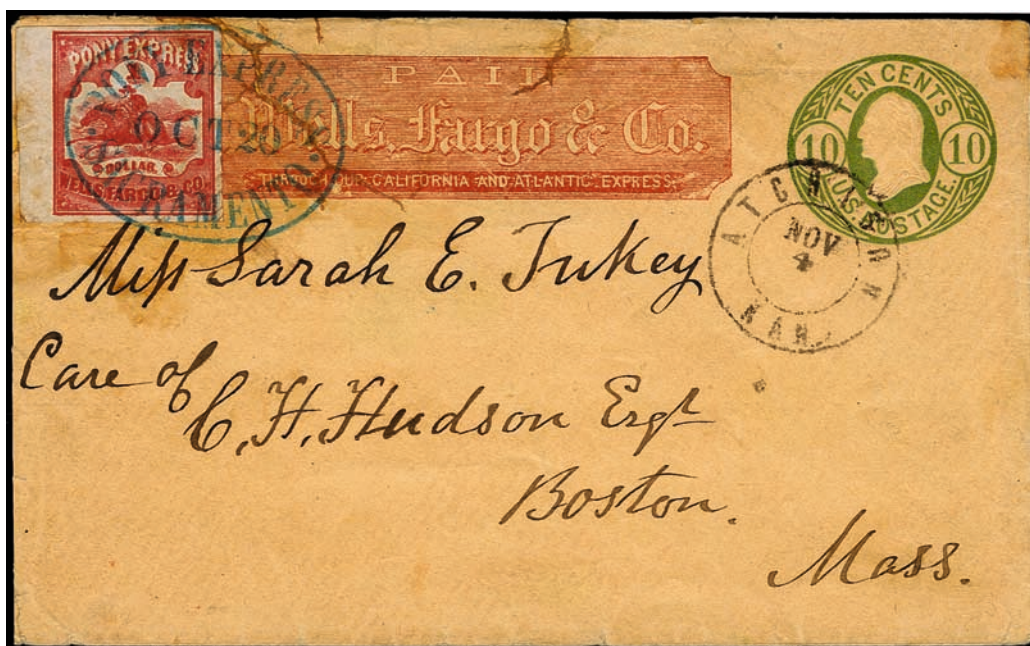 PONY EXPRESS
DOLLAR.
WELLS FARGO & CO.
PONY EXPRESS
OCT 20
SACRAMENTO.
PAID
Wells, Fargo & Co.
THROUGH OUR CALIFORNIA AND ATLANTIC EXPRESS.
TEN CENTS
10 10
U.S. POSTAGE.
ATCHISON
NOV
4
KAN.
Miss Sarah E. Tukey
Care of
C. H. Hudson Esqr
Boston.
Mass.